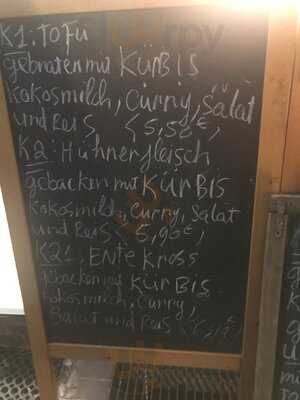 K1. TOFU
gebraten mit KÜRBIS
Kokosmilch, Curry, Salat
und Reis, < 5,50 €,
K2: Hühnerfleisch
gebacken mit KÜRBIS
Kokosmilch, Curry, Salat
und Reis 5,90 €,
K21, ENTE KROSS
gebacken mit KÜRBIS
Kokosmilch, Curry,
Salat und Reis